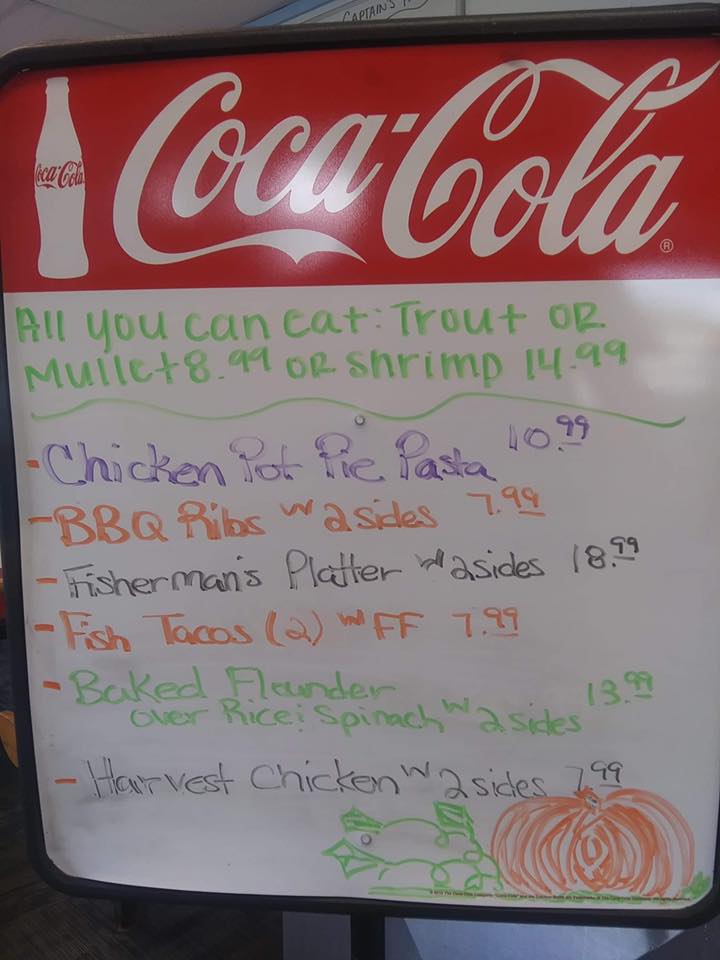 CAPTAIN'S
Coca-Cola
Coca-Cola ®
All you can eat: Trout OR
Mullet 8.99 OR shrimp 14.99
- Chicken Pot Pie Pasta 10.99
- BBQ Ribs w 2 sides 7.99
- Fisherman's Platter w 2 sides 18.99
- Fish Tacos (2) w/ FF 7.99
- Baked Flounder
over Rice & Spinach w 2 sides 13.99
- Harvest Chicken w 2 sides 7.99